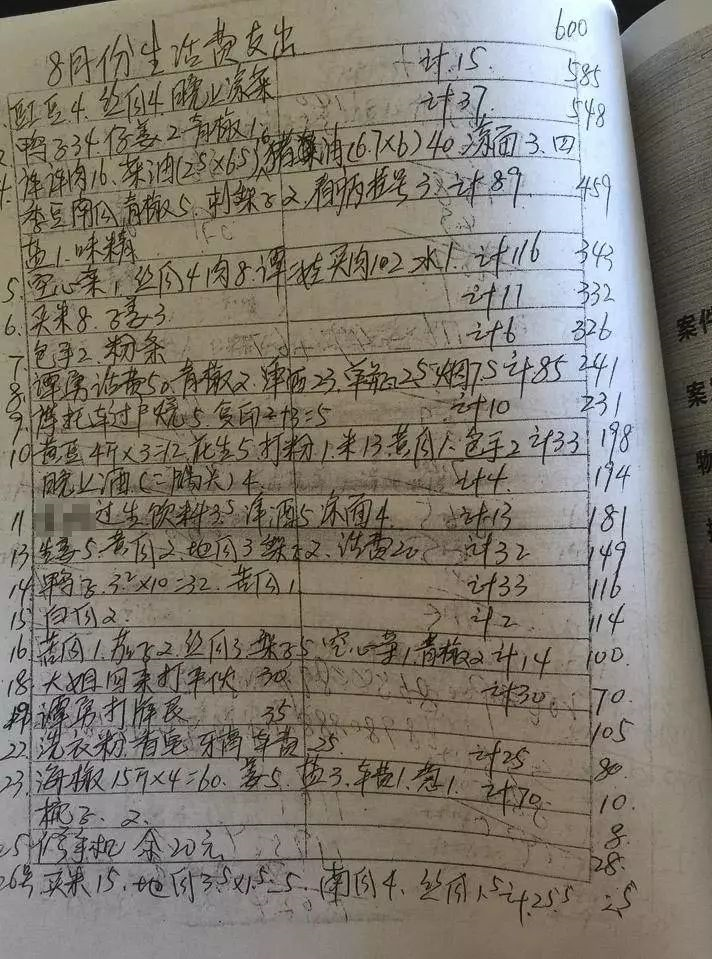 8月份生活费支出 600
豇豆4.丝瓜4.晚上凉菜 计15. 585
鸭子34 仔姜2 青椒1 计37 548
洋洋肉16.菜油(25×65) 猪油(6.7×6)40.汤面3.四
季豆南瓜青椒5.茄子2.看病挂号3.计89 459
盐1.味精
5.空心菜1.丝瓜4肉8.谭二娃买肉102水1.计116 343
6.买米8.子姜3. 计11 332
7 包子2.粉条 计6 326
8.谭勇话费50.青椒2.洋酒23.车费2.5 烟7.5 计85 241
9 摩托车过户烧5.复印2+3=5 计10 231
10 黄豆4斤×3=12.花生5 打粉1.米13.黄瓜1.包子2 计33 198
晚上酒(二锅头)4. 计4. 194
11 过生饮料3.5 洋酒5 凉面4. 计13 181
13 生姜5.黄瓜2.地瓜3 茄子2.话费20 计32 149
14 鸭子.3.2×10=32.苦瓜1 计33 116
15 白瓜2. 计2 114
16 苦瓜1.茄子2.丝瓜3.茄子5.空心菜1.青椒2.计14 100.
18 大姐回来打平伙 30 计30 70
19 谭勇打牌 35 105
22.洗衣粉 香皂 牙膏 车费 25 计25 80.
23.海椒15斤×4=60.姜5.盐3.车费1.葱1. 计70. 10.
桃子.2. 8.
25 修手机 余20元. 28.
26号 买米15.地瓜3.5×1.5=5.南瓜4.丝瓜1.5 计25.5 2.5
案件
案
物